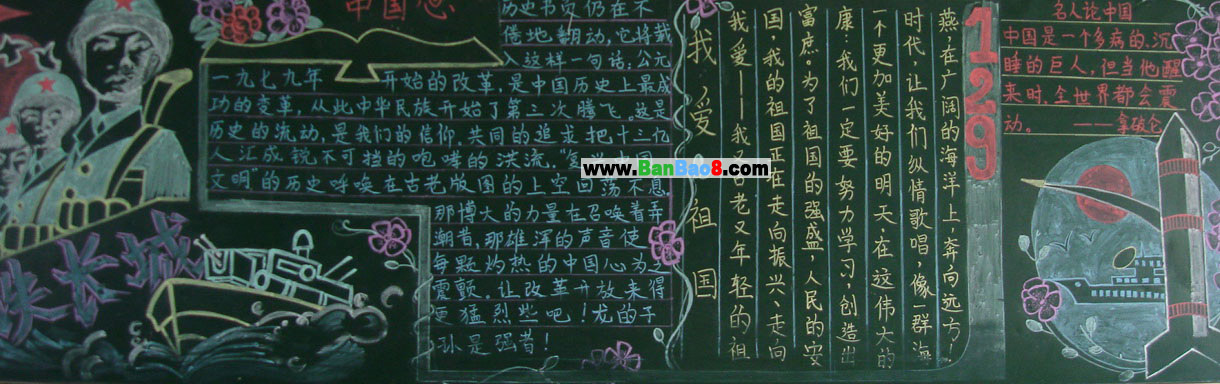 中国
历史书页仍在不
倦地翻动，它将载
入这样一句话：公元
一九七九年 开始的改革，是中国历史上最成
功的变革，从此中华民族开始了第三次腾飞。这是
历史的流动，是我们的信仰，共同的追求把十三亿
人汇成锐不可挡的咆哮的洪流，
文明"的历史呼唤在古老版图的上空回荡不息
那博大的力量在召唤着弄
潮者，那雄浑的声音使
每颗灼热的中国心为之
震颤。让改革开放来得
更猛烈些吧！龙的子
孙是强者！
长城
www.BanBao8.com
我爱祖国
我爱——我古老又年轻的祖
国，我的祖国正在走向振兴、走向
富庶。为了祖国的强盛，人民的安
康：我们一定要努力学习，创造出
一个更加美好的明天，在这伟大的
时代，让我们纵情歌唱，像群海
燕，在广阔的海洋上，奔向远方，
129
名人论中国
中国是一个多病的、沉
睡的巨人，但当他醒
来时，全世界都会震
动。 ——拿破仑